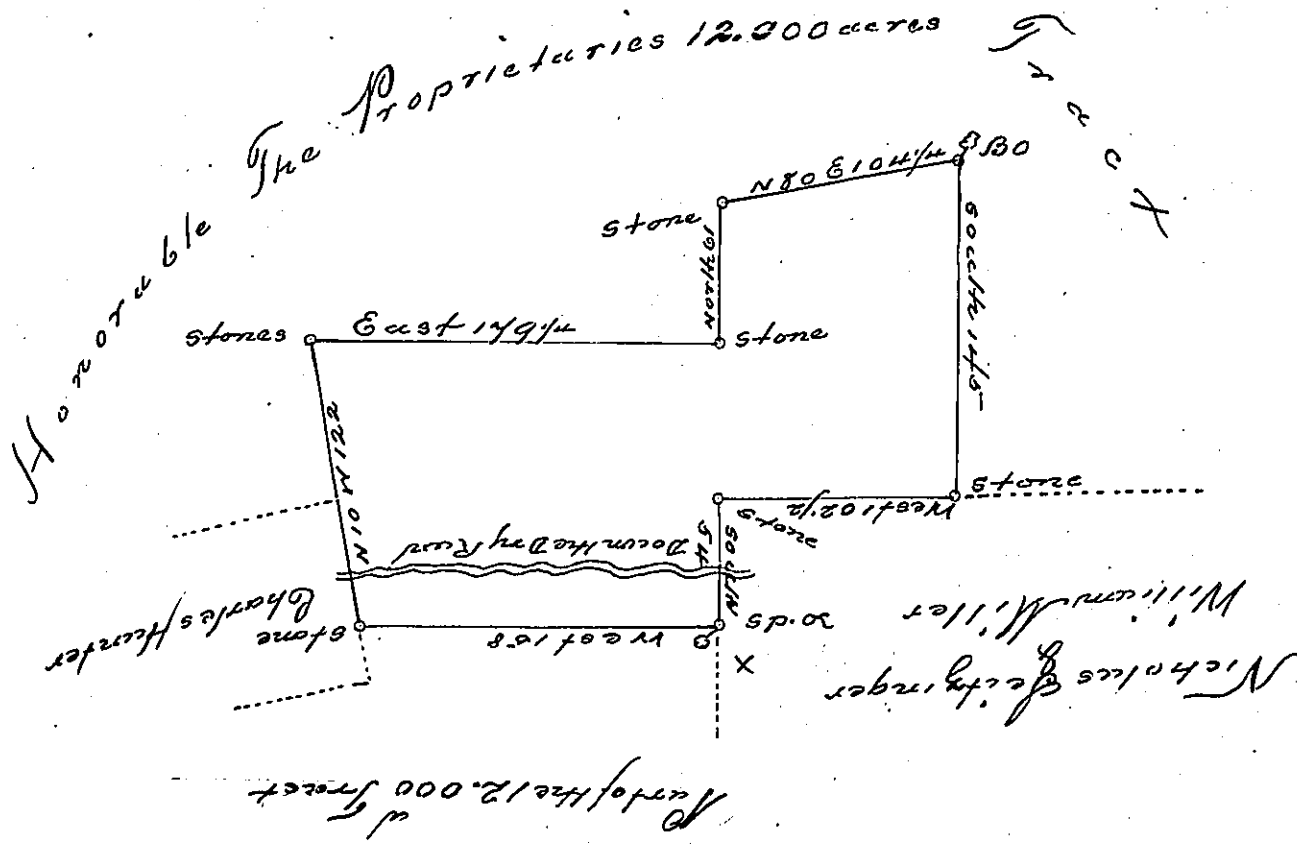 Honorable The Proprietaries 12.000 acres Tract
N80E 104¼
BO
Stone
North 61
South 145
Stones
East 179¼
Stone
N10W 122
Stone
West 102½
Stone
South 54
Down the Dry Run
Charles Hunter
Stone
West 158
William Miller
X
Nicholas Leitzinger
Part of the 12.000 Tract